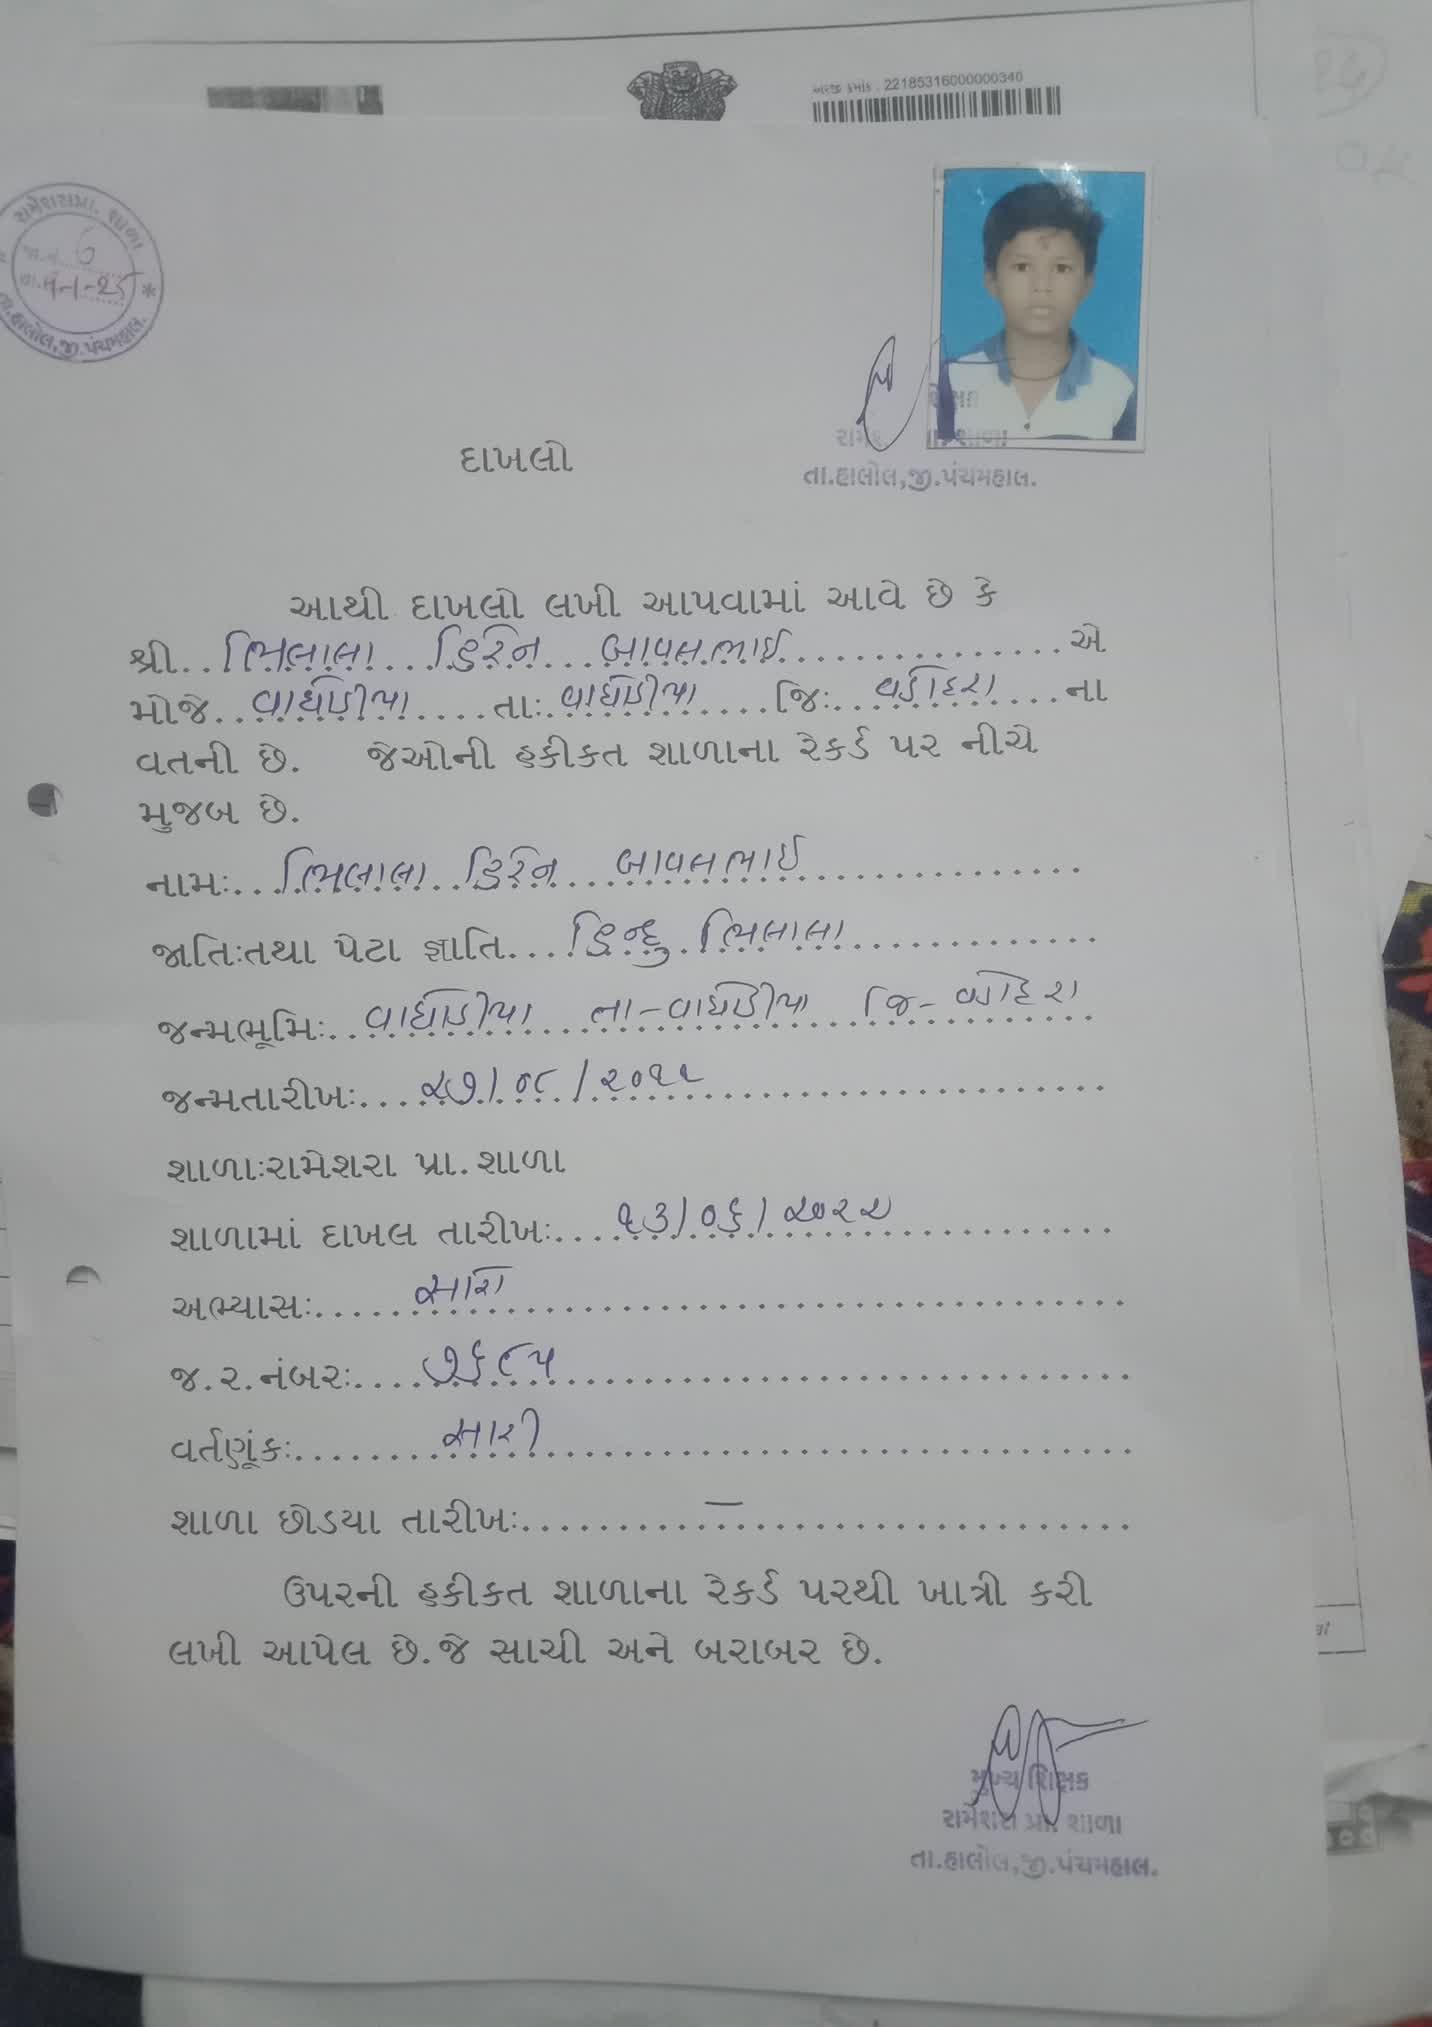 અરજી ક્રમાંક : 22185316000000340
રામેશરા પ્રા. શાળા
જા.નં. 6
તા.હાલોલ,જી.પંચમહાલ.
શાળા
તા.હાલોલ,જી.પંચમહાલ.
દાખલો
આથી દાખલો લખી આપવામાં આવે છે કે
શ્રી.. ભિલાલા... હિરેન... બાપલભાઈ...............એ
મોજે.. વાઘોડીયા....તાઃ.વાઘોડીયા....જિઃ..વડોદરા....ના
વતની છે. જેઓની હકીકત શાળાના રેકર્ડ પર નીચે
મુજબ છે.
નામઃ...ભિલાલા..હિરેન...બાપલભાઈ...............
જાતિઃતથા પેટા જ્ઞાતિ...હિન્દુ.ભિલાલા.............
જન્મભૂમિઃ..વાઘોડીયા...તા-વાઘોડીયા...જિ-વડોદરા
જન્મતારીખઃ...૨૭/૦૮/૨૦૧૧....................
શાળાઃરામેશરા પ્રા.શાળા
શાળામાં દાખલ તારીખઃ....૧૩/૦૬/૨૦૨૨..........
અભ્યાસઃ.....સારો..............................
જ.ર.નંબરઃ....૭૬૮૫............................
વર્તણૂંકઃ.......સારી............................
શાળા છોડયા તારીખઃ.........—..................
ઉપરની હકીકત શાળાના રેકર્ડ પરથી ખાત્રી કરી
લખી આપેલ છે.જે સાચી અને બરાબર છે.
મુખ્ય શિક્ષક
રામેશરા પ્રા. શાળા
તા.હાલોલ,જી.પંચમહાલ.